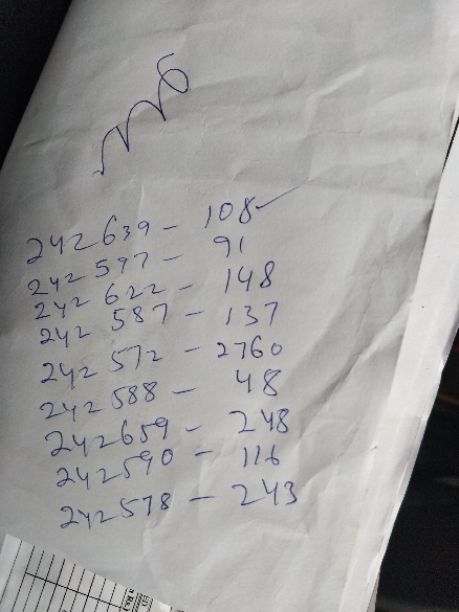 242639 - 108 ✓
242597 - 91
242622 - 148
242587 - 137
242572 - 2760
242588 - 48
242659 - 248
242590 - 116
242578 - 243